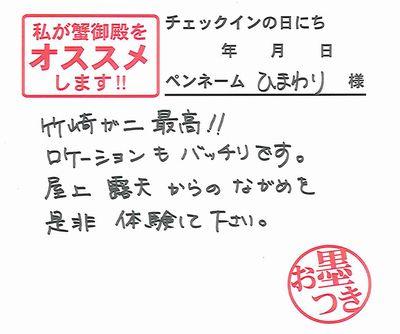 私が蟹御殿を
オススメ
します!!
チェックインの日にち
年 月 日
ペンネーム ひまわり 様
竹崎ガニ 最高!!
ロケーションも バッチリです。
屋上 露天 からの ながめを
是非 体験して下さい。
お墨つき